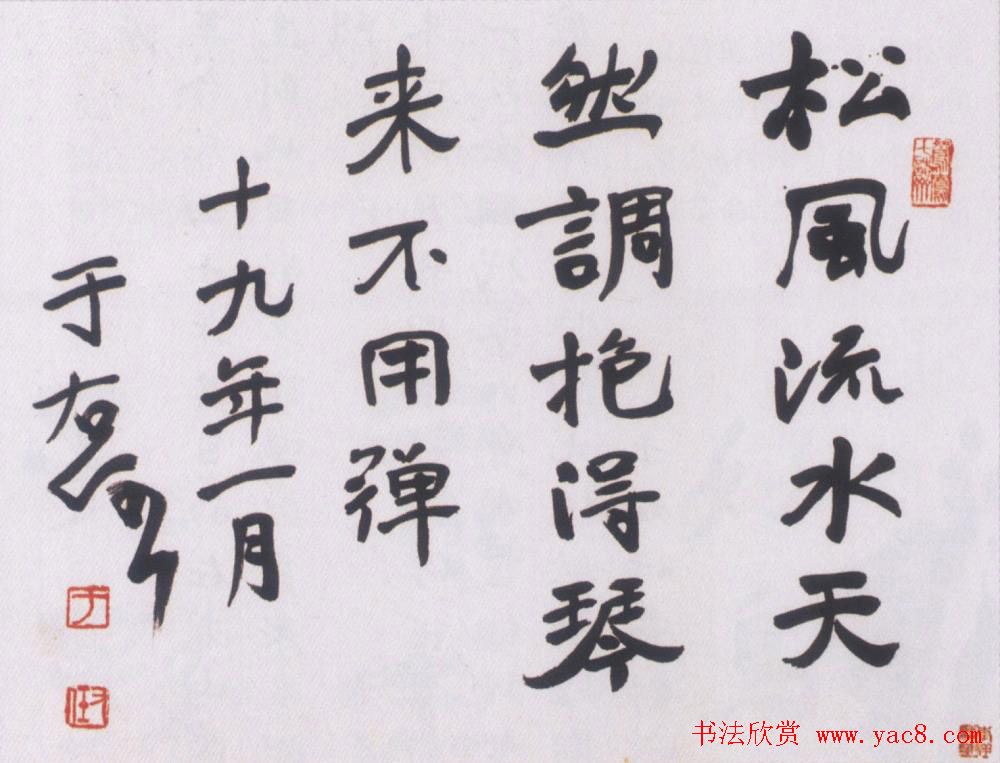 松風流水天
然調抱得琴
来不用弹
十九年一月
于右任
书法欣赏 www.yac8.com